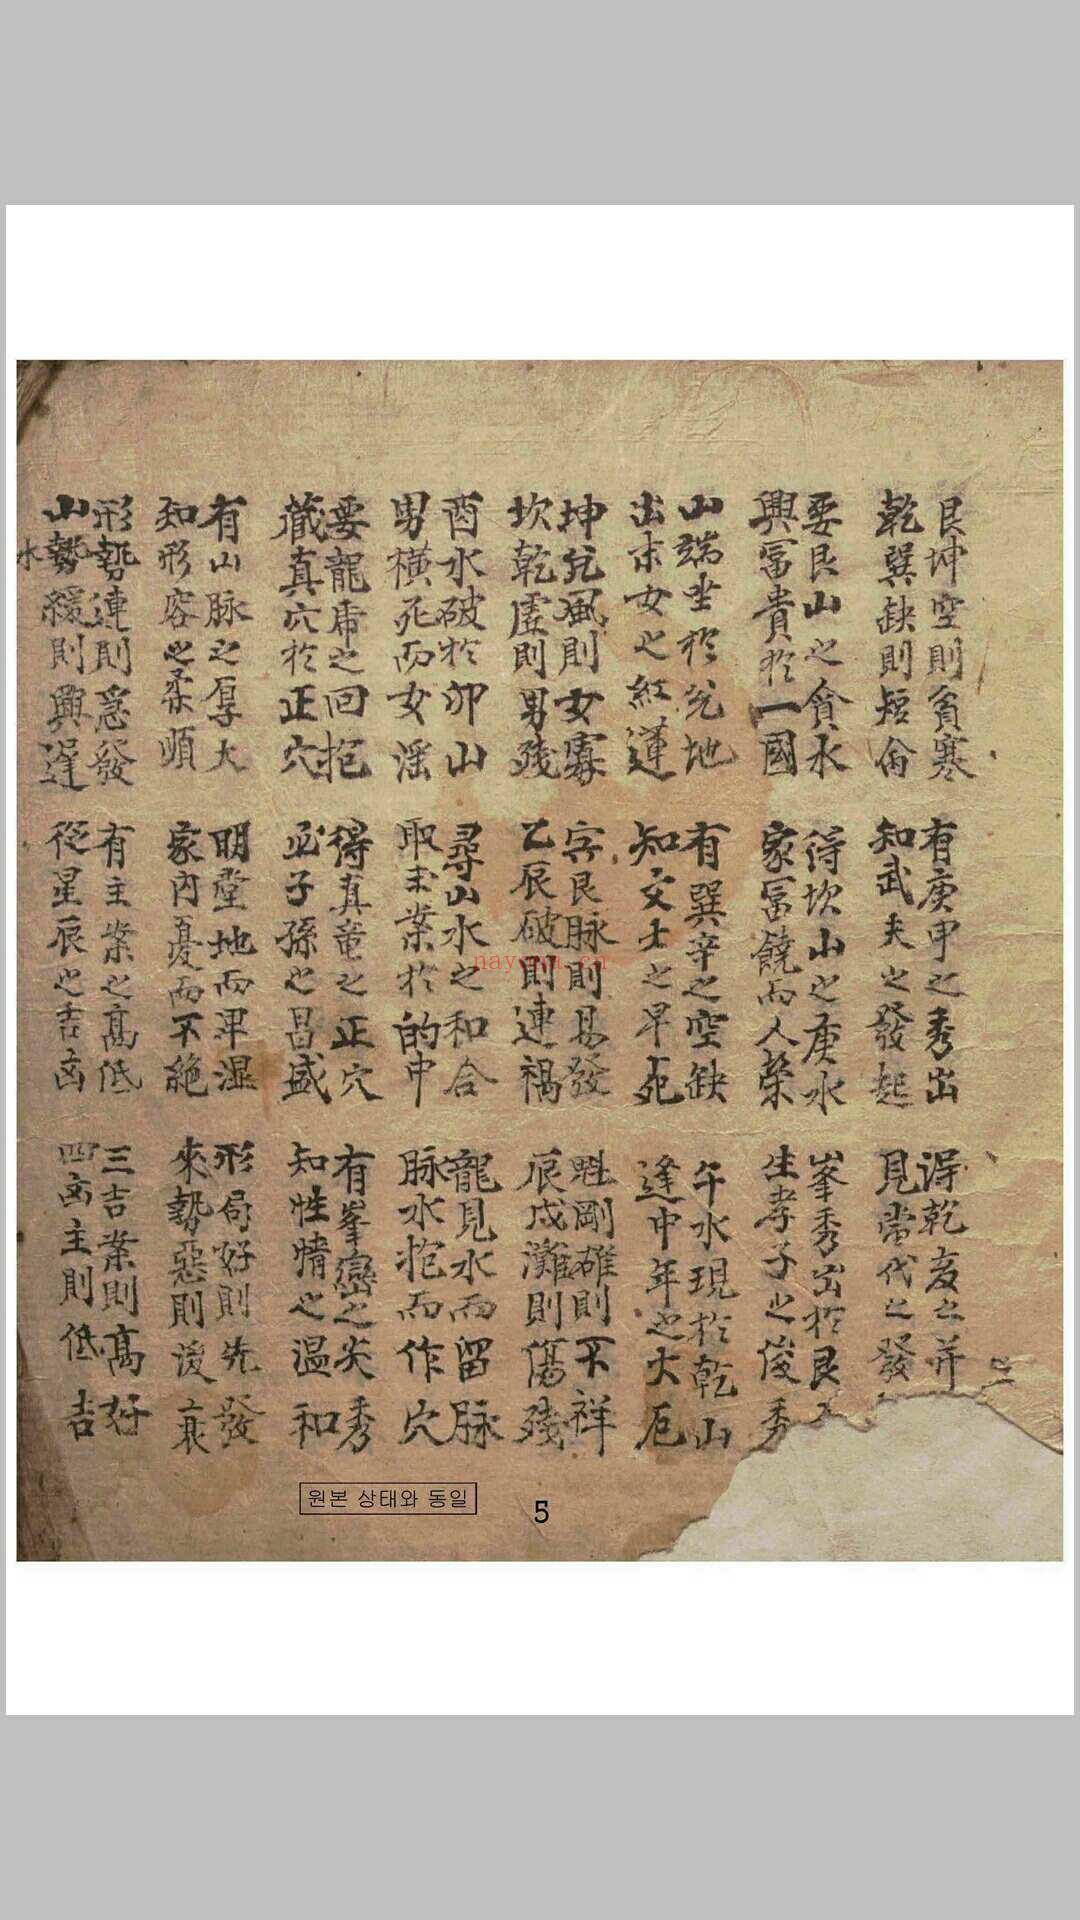 艮坤空則貧寒 有庚甲之秀出 得乾亥之并
乾巽缺則短命 知武夫之發起 見當代之發
要艮山之貪水 得坎山之庚水 峯秀出於艮
興冨貴於一國 家冨饒而人榮 生孝子之俊秀
山端坐於兌地 有巽辛之空缺 午水現於乾山
出末女之紅運 知文士之早死 逢中年之大厄
坤兌風則女寡 艮脉則易發 魁剛確則不祥
坎乾虛則男殘 乙辰破則連禍 辰戌灘則傷殘
酉水破於卯山 尋山水之和合 龍見水而留脉
男橫死而女淫 取主業於的中 脉水抱而作穴
要龍虎之回抱 得真竜之正穴 有峯巒之尖秀
藏真穴於正穴 必子孫之昌盛 知性情之溫和
有山脉之厚大 明堂地而卑湿 形局好則先發
知形容之柔順 家内憂而不絶 來勢惡則後衰
形勢連則急發 有主業之髙低 三吉業則髙好
山勢緩則興遲 從星辰之吉凶 四凶主則低吉
水
原본 상태와 동일
5
nayona.cn